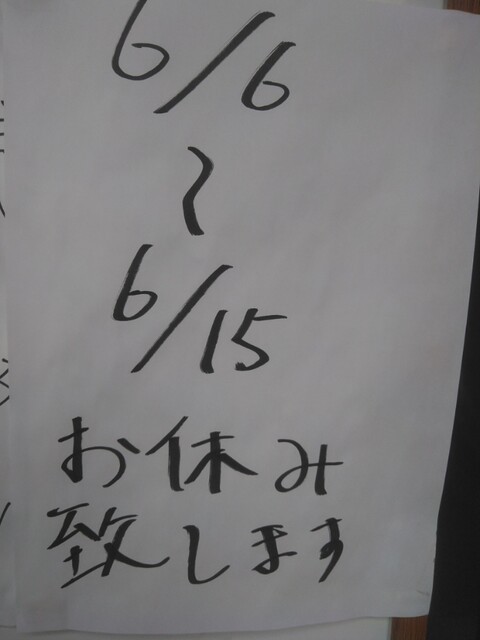 6/6
〜
6/15
お休み
致します